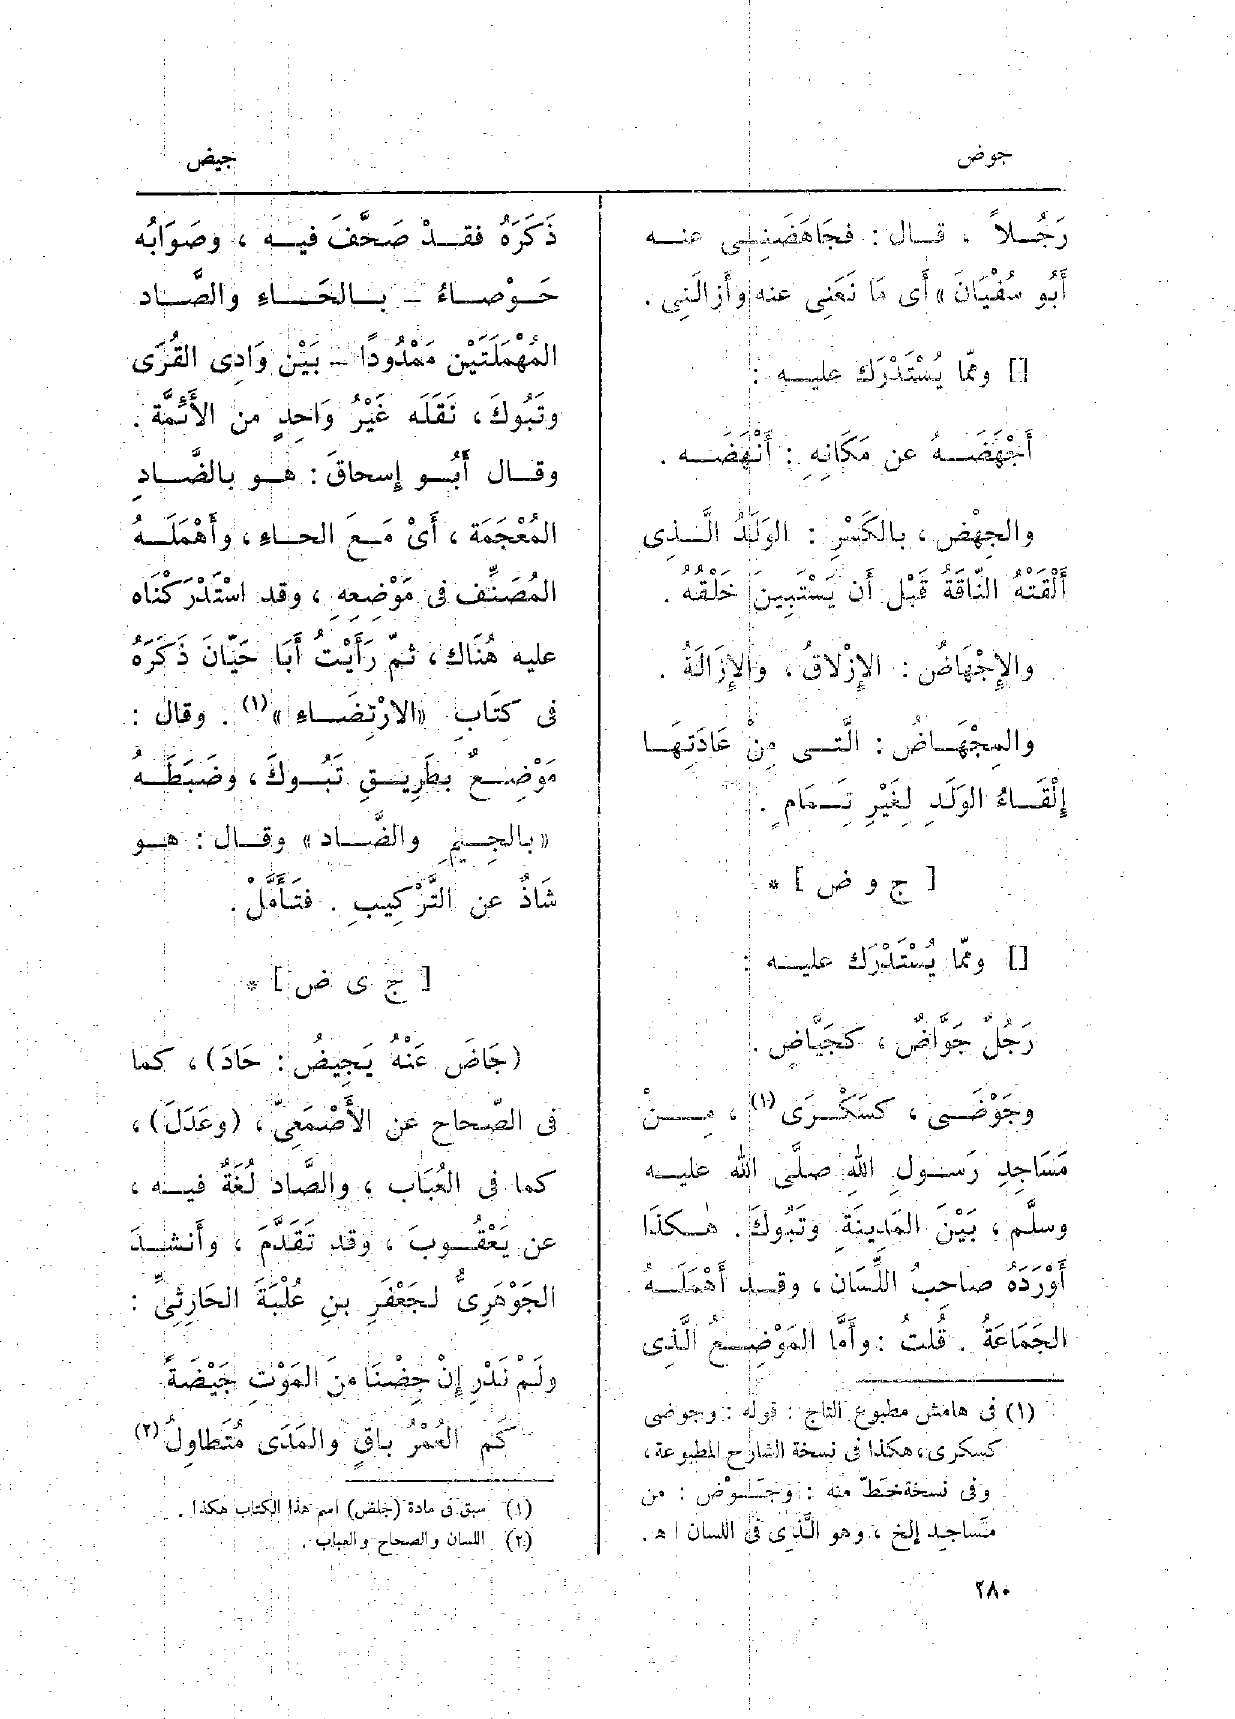 جوض
جيض
رَجُلاً ، قال : فجَاهَضَنِى عنه
أَبُو سُفْيَانَ » أَى مَا نَعَنِى عنه وأَزالَنِى .
[] وممّا يُسْتَدْرَك عليه :
أَجْهَضَهُ عن مَكَانِهِ : أَنْهَضَه .
والجِهْض ، بالكَسْرِ : الوَلَدُ الَّذِى
أَلْقَتْهُ النّاقَةُ قَبْل أَن يَسْتَبِينَ خَلْقُه .
والإِجْهَاضُ : الإِزْلاقُ ، والإِزَالَةُ .
والمِجْهَاضُ : الَّتى مِنْ عَادَتِهَا
إِلْقَاءُ الوَلَدِ لِغَيْرِ تِمَامٍ .
[ ج و ض ] *
[] وممّا يُسْتَدْرَك عليه :
رَجُلٌ جَوَّاضٌ ، كجَيَّاضٍ .
وجَوْضَى ، كسَكْرَى (١) ، مِنْ
مَسَاجِدِ رَسولِ اللهِ صلَّى الله عليه
وسلَّم ، بَيْنَ المَدِينَةِ وتَبُوكَ . هكَذَا
أَوْرَدَهُ صاحبُ اللِّسَان ، وقد أَهْمَلَهُ
الجَمَاعَةُ . قُلتُ : وأَمَّا المَوْضِعُ الَّذِى
(١) فى هامش مطبوع التاج : قوله : وجوضى
كسكرى، هكذا فى نسخة الشارح المطبوعة ،
وفى نسخة خطّ منه : وجَوْض : من
مَسَاجد إلخ ، وهو الَّذى فى اللسان اهـ .
٢٨٠
ذَكَرَهُ فقدْ صَحَّفَ فيه ، وصَوَابُه
حَوْصاءُ – بالحَاءِ والصَّاد
المُهْمَلَتَيْن مَمْدُودًا – بَيْن وَادِى القُرَى
وتَبُوكَ ، نَقَلَه غَيْرُ وَاحِدٍ من الأَئِمَّة .
وقال أَبُو إِسحاقَ : هو بالضَّادِ
المُعْجَمَة ، أَىْ مَعَ الحاءِ ، وأَهْمَلَهُ
المُصَنِّف فى مَوْضِعِه ، وقد اسْتَدْرَكْنَاه
عليه هُنَاك ، ثمّ رَأَيْتُ أَبَا حَيّانَ ذَكَرَهُ
فى كتَابِ «الارْتِضَاءِ »(١) . وقال :
مَوْضِعٌ بطَرِيقِ تَبُوكَ ، وضَبَطَهُ
«بالجِيمِ والضَّاد» وقال : هو
شَاذٌ عن التَّرْكِيبِ . فتَأَمَّلْ .
[ ج ى ض ] *
(جَاضَ عَنْهُ يَجِيضُ : حَادَ) ، كما
فى الصّحاح عن الأَصْمَعِىّ ، (وعَدَلَ) ،
كما فى العُبَاب ، والصَّاد لُغَةٌ فيه ،
عن يَعْقُوبَ ، وقد تَقَدَّمَ ، وأَنشدَ
الجَوْهَرِىُّ لجَعْفَرِ بنِ عُلْبَةَ الحَارِثِىِّ :
ولَمْ نَدْرِ إِنْ جِضْنَا مِنَ المَوْتِ جَيْضَةً
كَمِ العُمْرُ باقٍ والمَدَى مُتَطاوِلُ (٢)
(١) سبق فى مادة (جلض) اسم هذا الكتاب هكذا .
(٢) اللسان والصحاح والعباب .